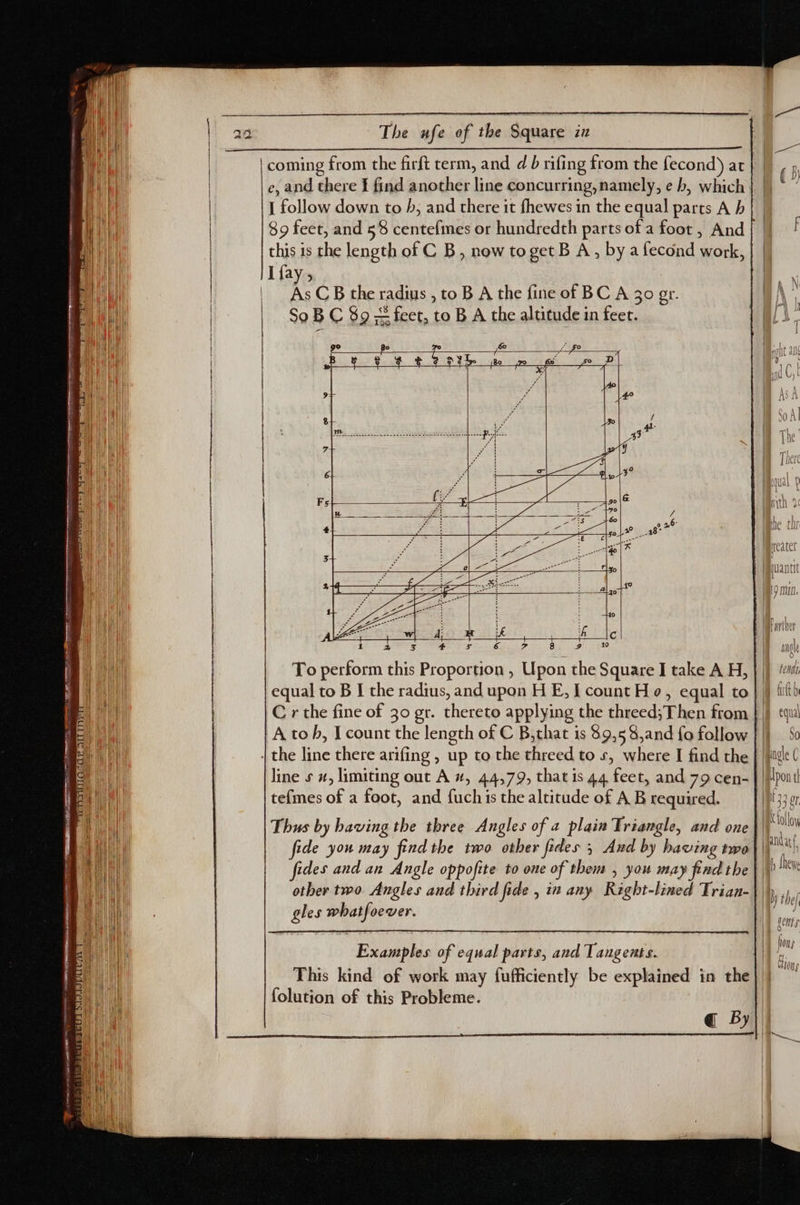 22 The uſe of the Square in
coming from the firſt term, and d b riſing from the ſecond) at
c, and there I find another line concurring, namely, e h, which
I follow down to h, and there it ſhewes in the equal parts A h
89 feet, and 58 centeſmes or hundredth parts of a foot, And
this is the length of C B, now to get B A, by a ſecond work,
I ſay,
As C B the radius, to B A the ſine of B C A 30 gr.
So B C 89 58/100 feet, to B A the altitude in feet.
90 80 70 60 50
B D
9
8
m
7
6
F 5 G
4
3
2
1
A w M k h C
1 2 3 4 5 6 7 8 9 10
To perform this Proportion, Upon the Square I take A H,
equal to B I the radius, and upon H E, I count H o, equal to
C r the ſine of 30 gr. thereto applying the threed; Then from
A to h, I count the length of C B, that is 89,58, and ſo follow
the line there ariſing, up to the threed to s, where I find the
line s u, limiting out A u, 44,79, that is 44 feet, and 79 cen-
teſmes of a foot, and ſuch is the altitude of A B required.
Thus by having the three Angles of a plain Triangle, and one
ſide you may find the two other ſides; And by having two
ſides and an Angle oppoſite to one of them, you may find the
other two Angles and third ſide, in any Right-lined Trian-
gles whatſoever.
Examples of equal parts, and Tangents.
This kind of work may ſufficiently be explained in the
ſolution of this Probleme.
¶ By